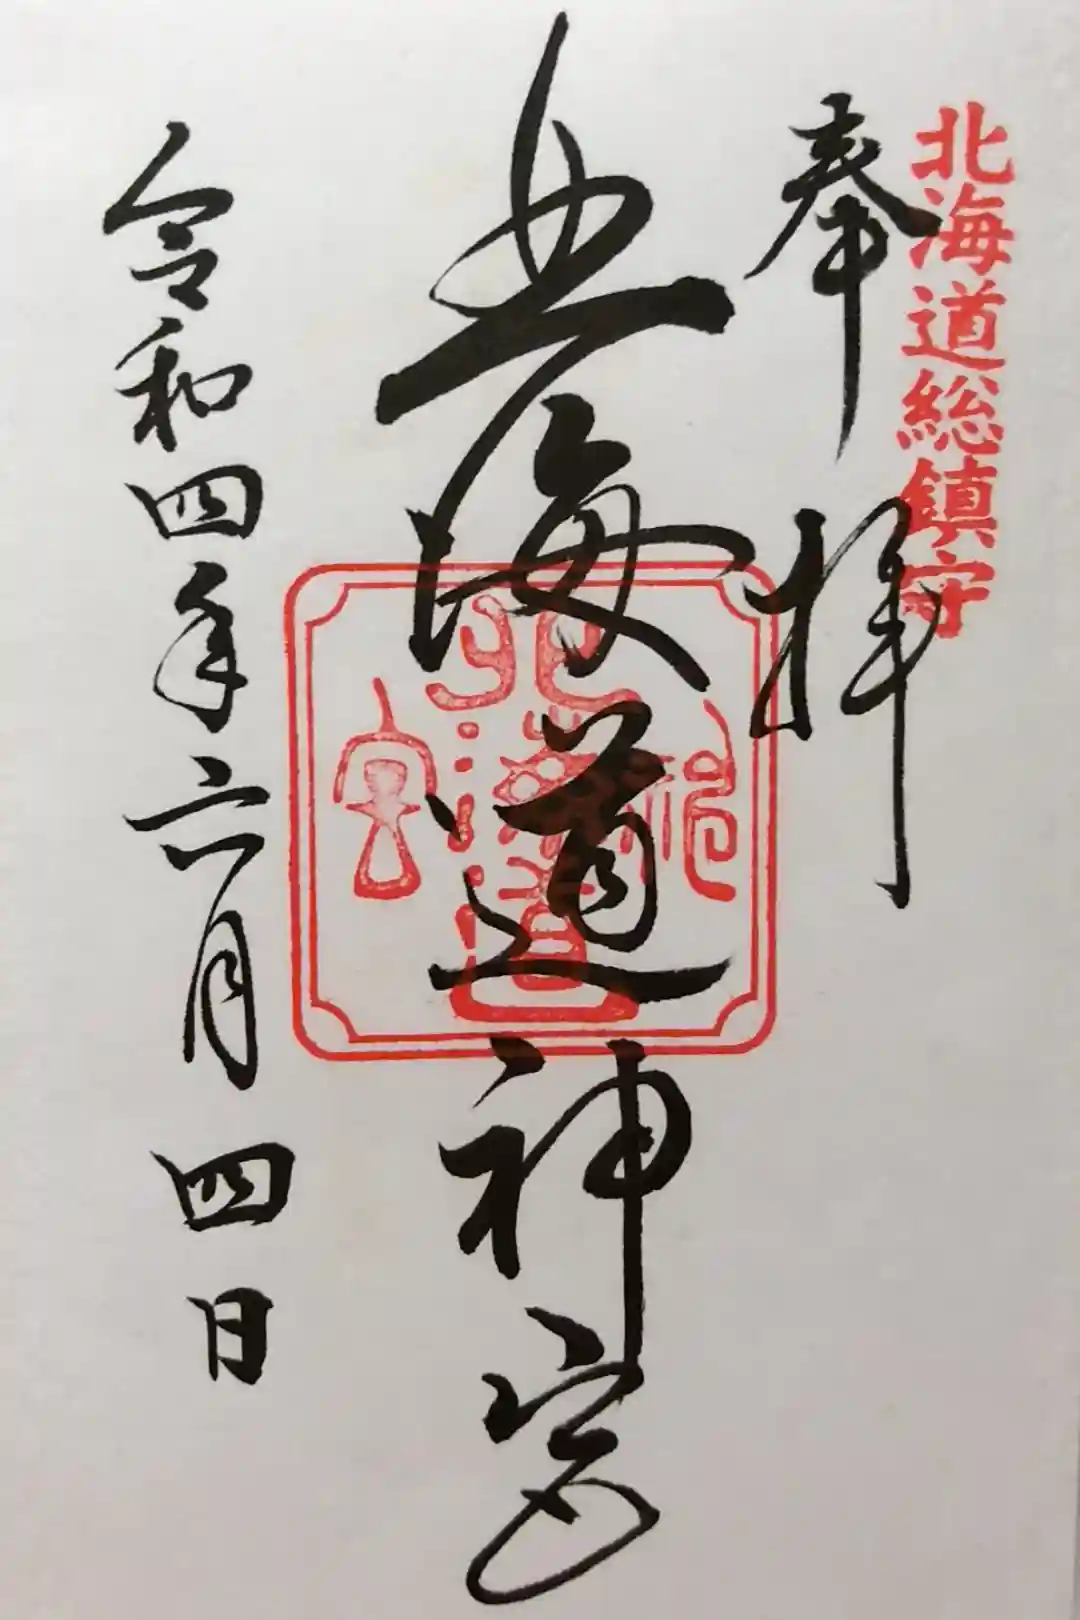 北海道総鎮守
奉拝
北海道神宮
北海道神宮
令和四年六月四日